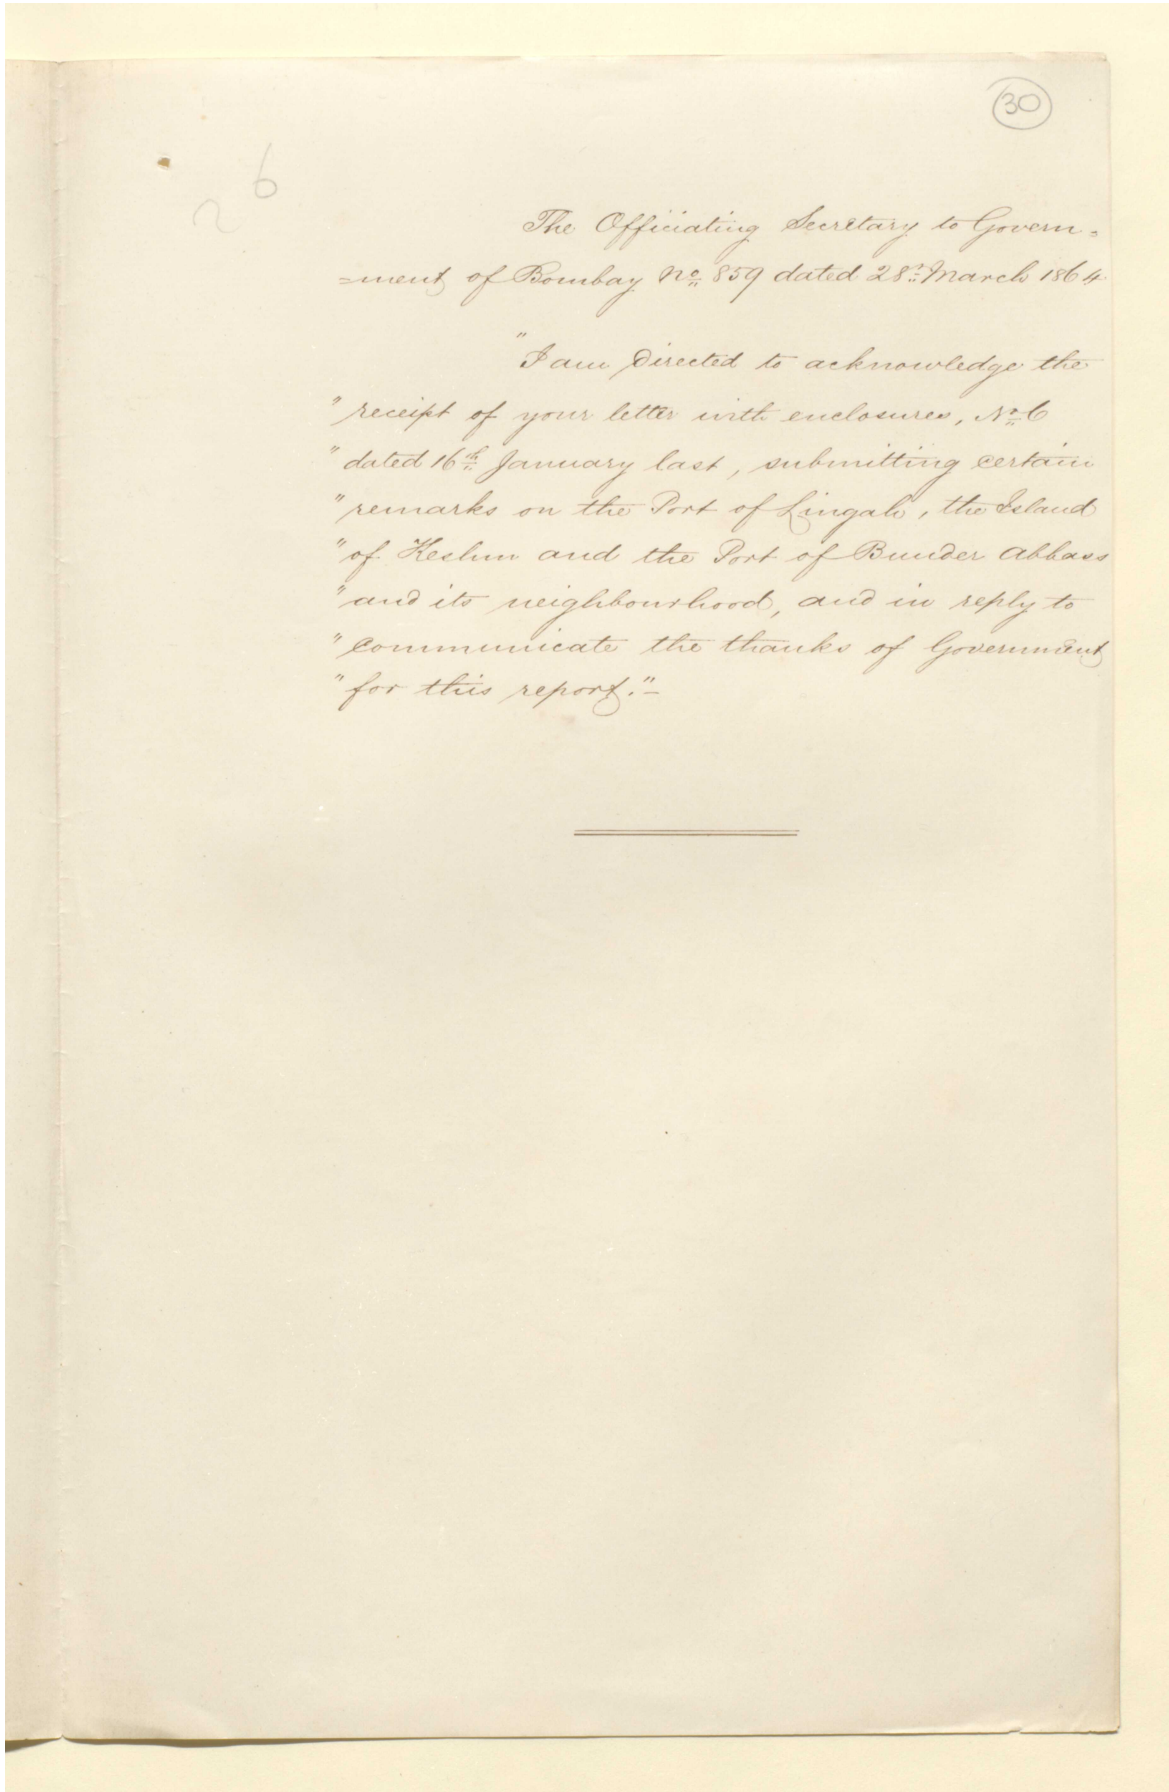 30
6
2
The Officiating Secretary to Govern=
=ment of Bombay No 859 dated 28th March 1864
"I am directed to acknowledge the
"receipt of your letter with enclosures, No 6
"dated 16th January last, submitting certain
"remarks on the Port of Lingah, the Island
"of Keshm and the Port of Bunder Abbass
"and its neighbourhood, and in reply to
"communicate the thanks of Government
"for this report."_